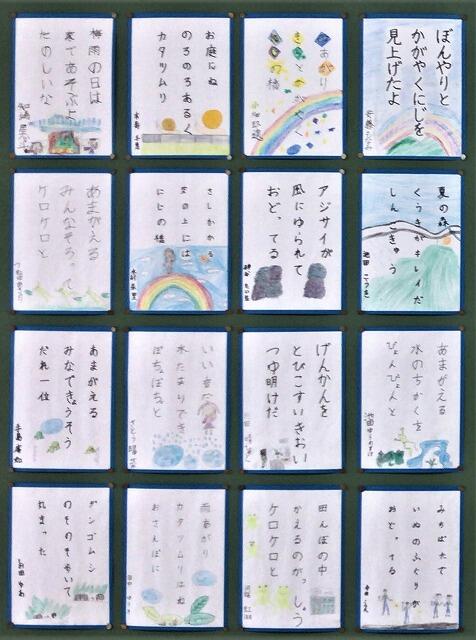 ぼんやりと
かがやくにじを
見上げたよ
あがり
きらきらかがやく
の橋
お庭にね
のろのろあるく
カタツムリ
梅雨の日は
家であそぶよ
たのしいな
夏の森
くうきがキレイだ
しんこきゅう
池田
アジサイが
風にゆられて
おどってる
さしかかる
空の上には
にじの橋
あまがえる
みんなそろって
ケロケロと
あまがえる
水のちかくを
ぴょんぴょんと
げんかんを
とびこすいきおい
つゆ明けだ
いい音だ
水たまりでき
ぽちゃぽちゃと
あまがえる
みなできょうそう
だれ一位
みちばたで
いぬのふぐりが
おどってる
田んぼの中
かえるのがっしょう
ケロケロと
雨あがり
カタツムリはね
おさんぽに
ダンゴムシ
のそのそあるいて
丸まった